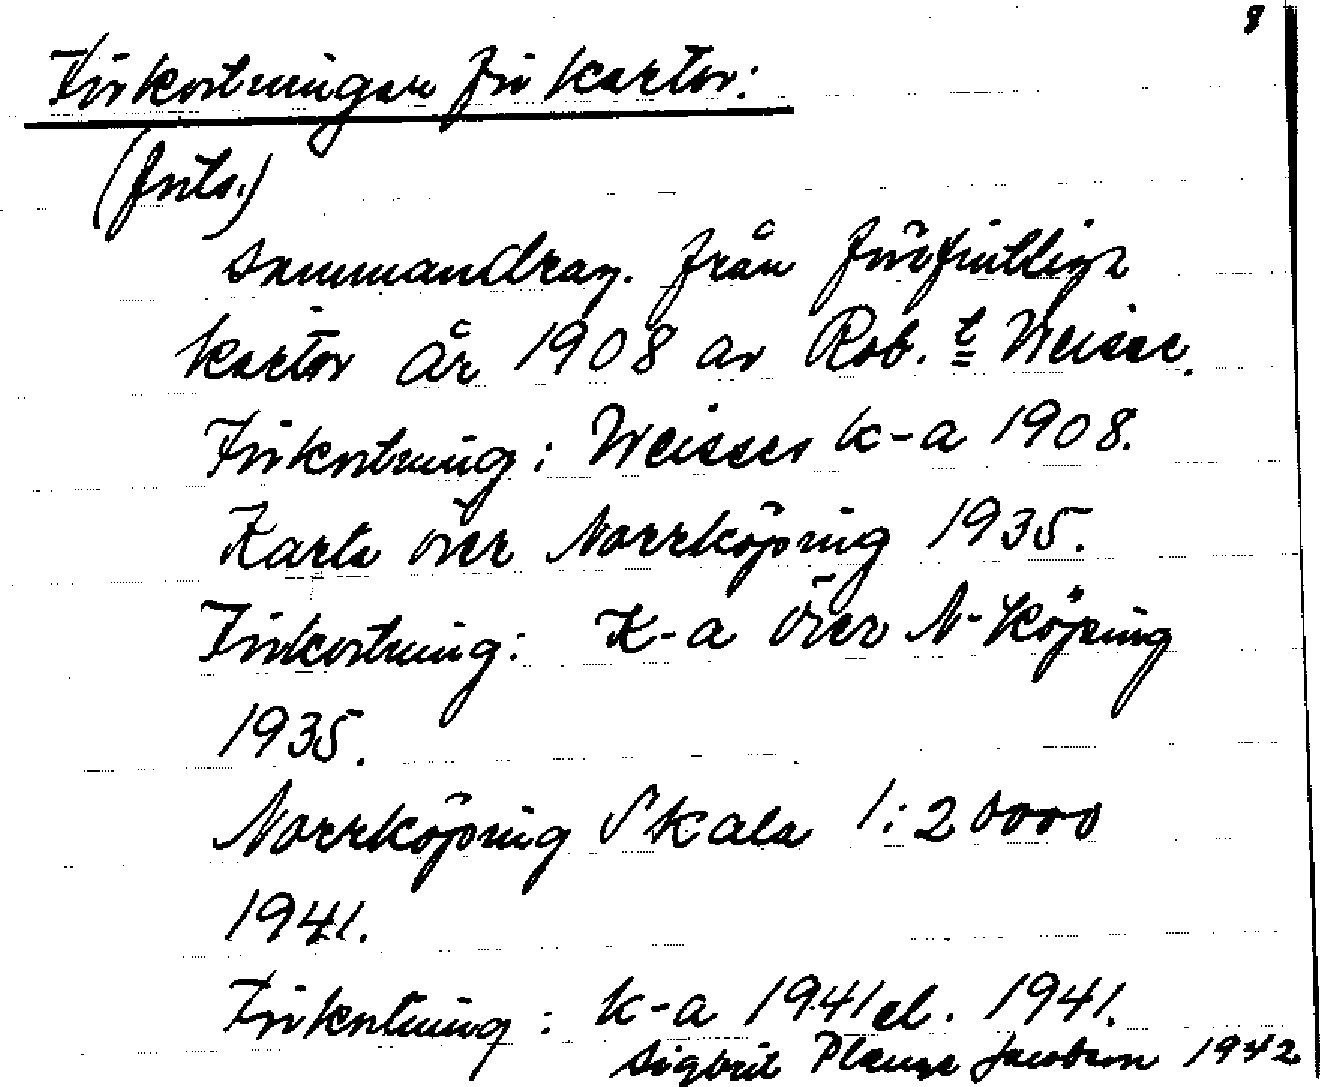 8
Förkortningar för kartor:
(forts.)
Sammandrag. från förfintliga
kartor år 1908 av Rob. t Weise.
Förkortning: Weises k-a 1908.
Karta över Norrköping 1935.
Förkortning: K-a över N-köping
1935.
Norrköping Skala 1:20000
1941.
Förkortning: k-a 1941 el. 1941.
Sigbrit Plænge Jacobson 1942